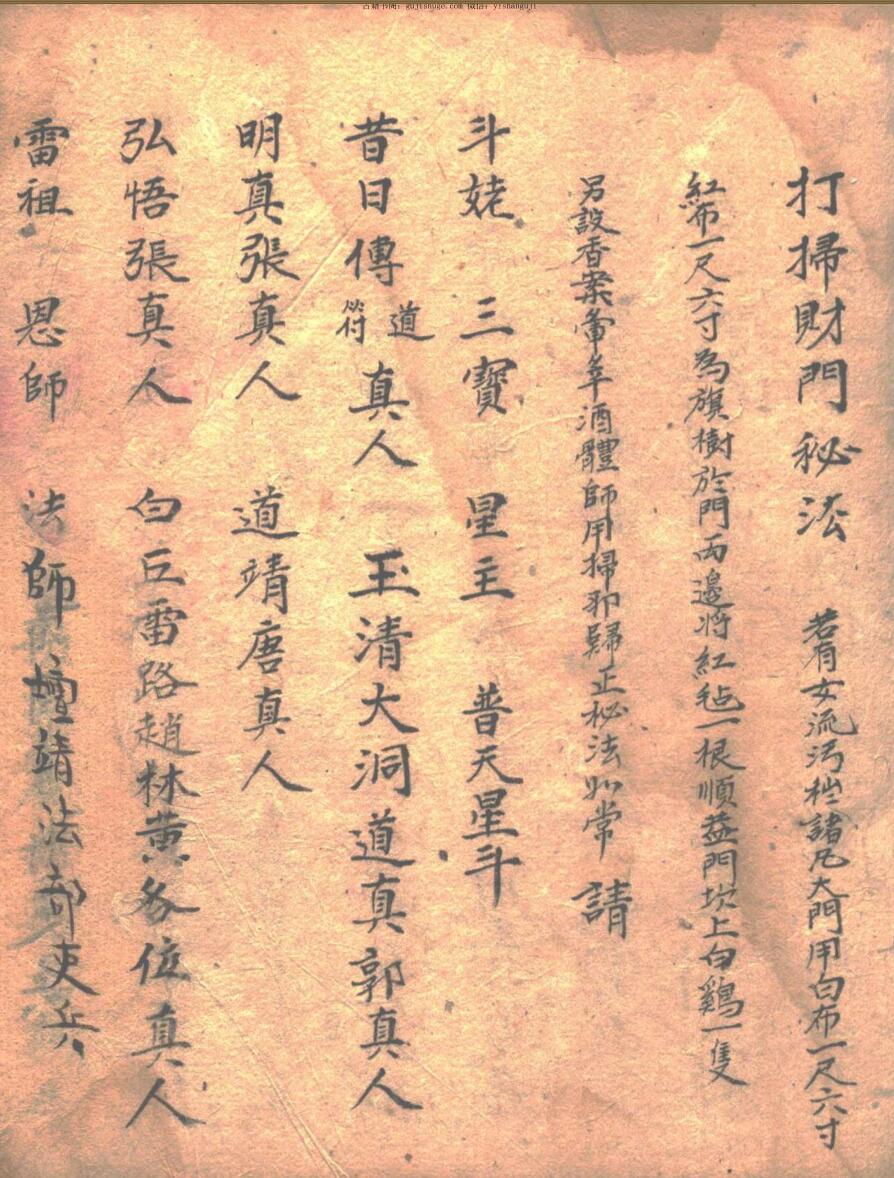 古籍书阁：gujishuge.com 微信：yishanguji
打掃財門秘法 若有女流污秽諸凡大門用白布一尺六寸
紅布一尺六寸為旗樹於門两邊将紅毡一根順蓋門坎上白鷄一隻
另設香案 酒醴師用掃邪歸正秘法如常 請
斗姥 三寳 星主 普天星斗
昔日傳道符真人 玉清大洞道真郭真人
明真張真人 道靖唐真人
弘悟張真人 白丘雷路趙林黄各位真人
雷祖 恩師 法師壇靖法部吏兵